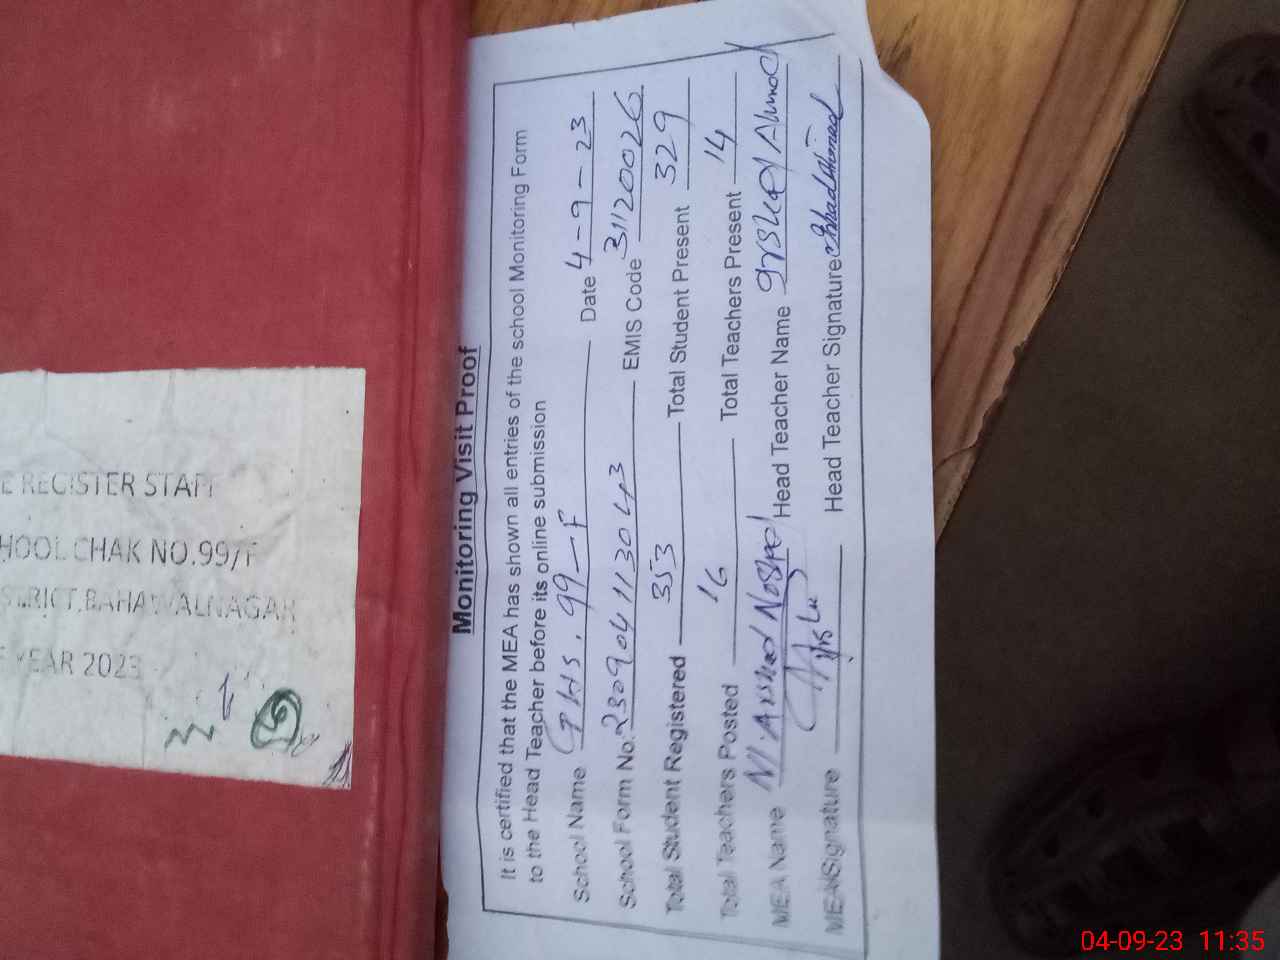 E REGISTER STAFF
HOOL CHAK NO.99/F
STRICT, BAHAWALNAGAR
YEAR 2023
Monitoring Visit Proof
It is certified that the MEA has shown all entries of the school Monitoring Form
to the Head Teacher before its online submission
School Name GHS. 99-F Date 4-9-23
School Form No. 23090411 3043 EMIS Code 31120026
Total Student Registered 353 Total Student Present 329
Total Teachers Posted 16 Total Teachers Present 14
MEA Name M. Arshad Head Teacher Name Irshad Ahmad
MEA Signature Head Teacher Signature Irshad Ahmed
04-09-23 11:35